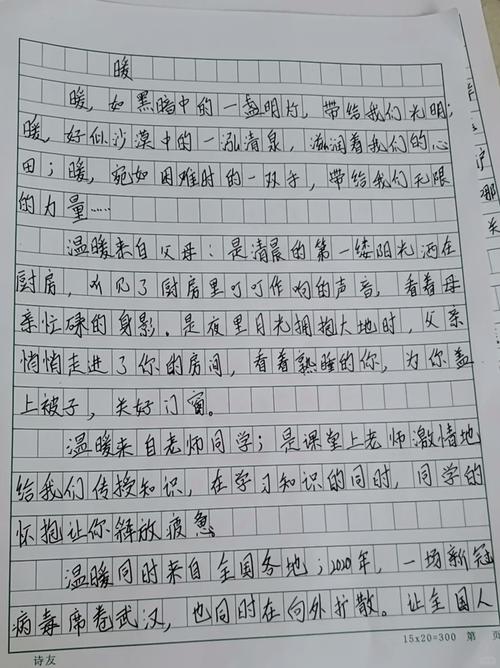 暖
暖,如黑暗中的一盏明灯,带给我们光明;
暖,好似沙漠中的一泓清泉,滋润着我们的心
田;暖,宛如困难时的一双手,带给我们无限
的力量……
温暖来自父母:是清晨的第一缕阳光洒在
厨房,听见了厨房里叮叮作响的声音,看着母
亲忙碌的身影.是夜里月光拥抱大地时,父亲
悄悄走进了你的房间,看着熟睡的你,为你盖
上被子,关好门窗。
温暖来自老师同学;是课堂上老师激情地
给我们传授知识,在学习知识的同时,同学的
怀抱让你解放疲惫
温暖同时来自全国各地;2020年,一场新冠
病毒席卷武汉,也同时在向外扩散。让全国人
15x20=300 第 页
诗友